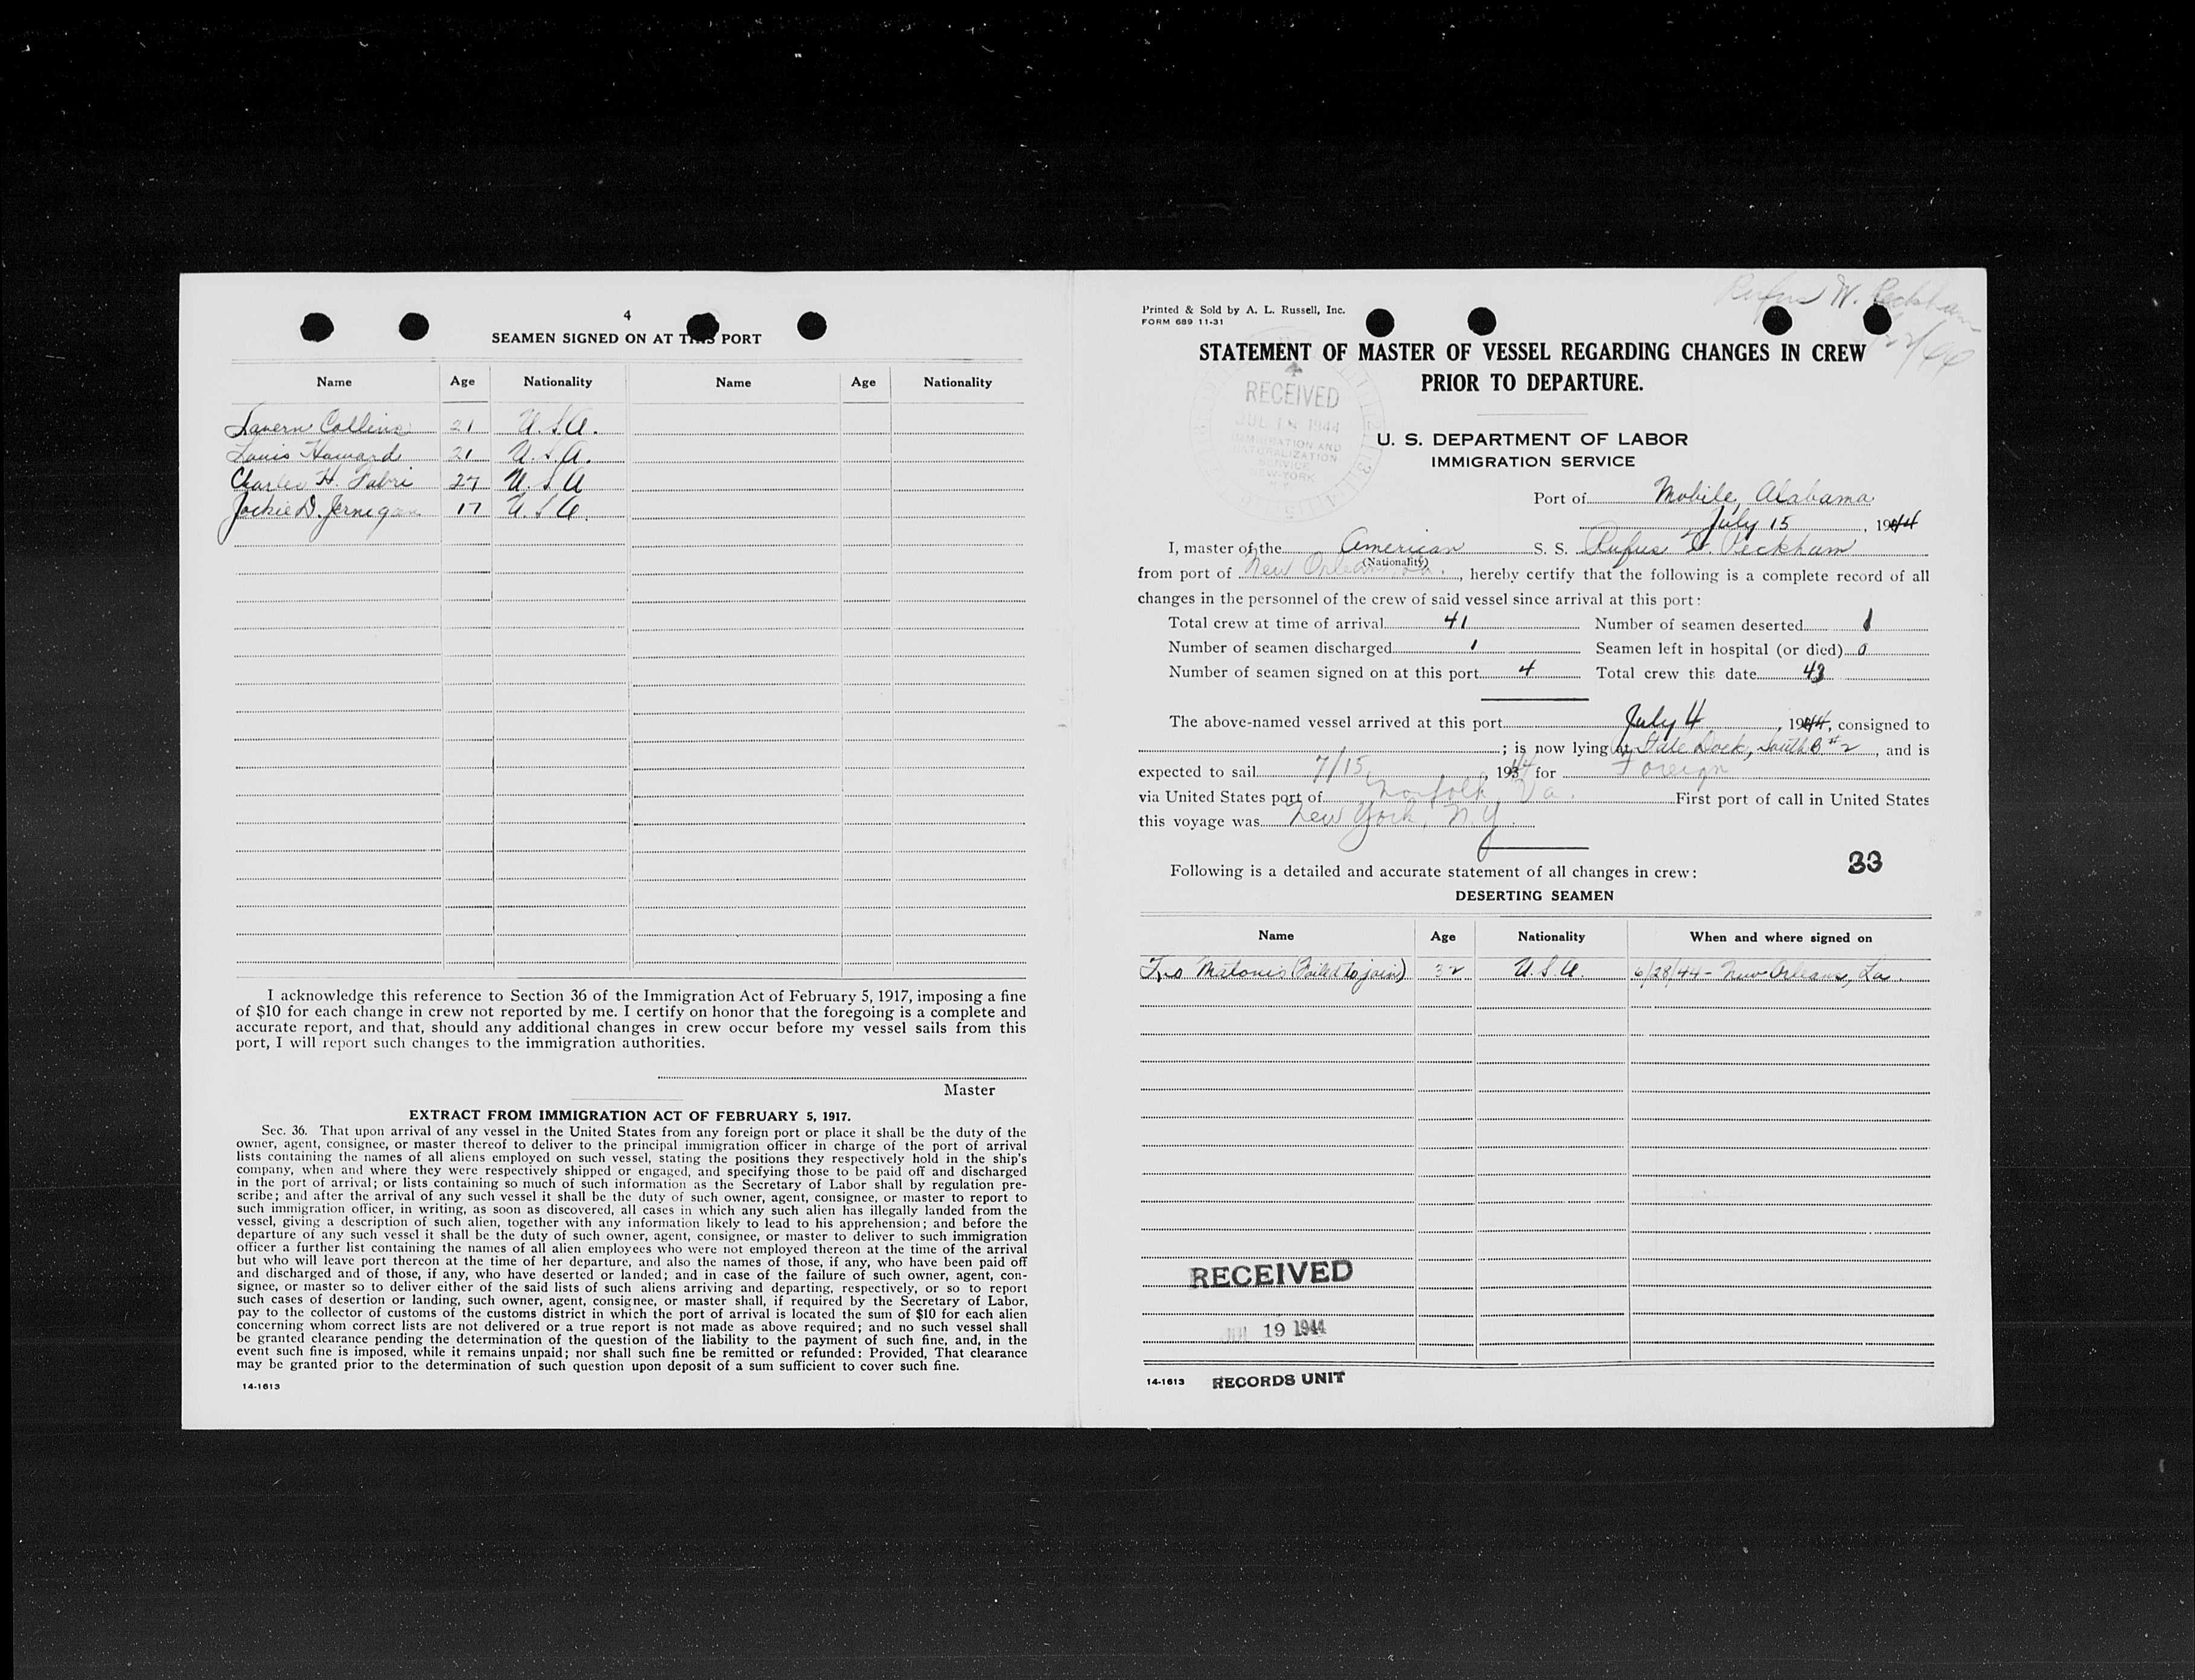 4
SEAMEN SIGNED ON AT THIS PORT
Name Age Nationality Name Age Nationality
Lavern Collins 21 U.S.A.
Louis Howard 21 U.S.A.
Charles H. Fabri 27 U.S.A
Jackie D. Jernigan 17 U.S.A.
I acknowledge this reference to Section 36 of the Immigration Act of February 5, 1917, imposing a fine
of $10 for each change in crew not reported by me. I certify on honor that the foregoing is a complete and
accurate report, and that, should any additional changes in crew occur before my vessel sails from this
port, I will report such changes to the immigration authorities.
Master
EXTRACT FROM IMMIGRATION ACT OF FEBRUARY 5, 1917.
Sec. 36. That upon arrival of any vessel in the United States from any foreign port or place it shall be the duty of the
owner, agent, consignee, or master thereof to deliver to the principal immigration officer in charge of the port of arrival
lists containing the names of all aliens employed on such vessel, stating the positions they respectively hold in the ship's
company, when and where they were respectively shipped or engaged, and specifying those to be paid off and discharged
in the port of arrival; or lists containing so much of such information as the Secretary of Labor shall by regulation pre-
scribe; and after the arrival of any such vessel it shall be the duty of such owner, agent, consignee, or master to report to
such immigration officer, in writing, as soon as discovered, all cases in which any such alien has illegally landed from the
vessel, giving a description of such alien, together with any information likely to lead to his apprehension; and before the
departure of any such vessel it shall be the duty of such owner, agent, consignee, or master to deliver to such immigration
officer a further list containing the names of all alien employees who were not employed thereon at the time of the arrival
but who will leave port thereon at the time of her departure, and also the names of those, if any, who have been paid off
and discharged and of those, if any, who have deserted or landed; and in case of the failure of such owner, agent, con-
signee, or master so to deliver either of the said lists of such aliens arriving and departing, respectively, or so to report
such cases of desertion or landing, such owner, agent, consignee, or master shall, if required by the Secretary of Labor,
pay to the collector of customs of the customs district in which the port of arrival is located the sum of $10 for each alien
concerning whom correct lists are not delivered or a true report is not made as above required; and no such vessel shall
be granted clearance pending the determination of the question of the liability to the payment of such fine, and, in the
event such fine is imposed, while it remains unpaid; nor shall such fine be remitted or refunded: Provided, That clearance
may be granted prior to the determination of such question upon deposit of a sum sufficient to cover such fine.
14-1613
Rufus W. Peckham
Printed & Sold by A. L. Russell, Inc.
FORM 689 11-31
STATEMENT OF MASTER OF VESSEL REGARDING CHANGES IN CREW
PRIOR TO DEPARTURE.
RECEIVED
1944
IMMIGRATION AND
NATURALIZATION
SERVICE
NEW YORK
U. S. DEPARTMENT OF LABOR
IMMIGRATION SERVICE
Port of Mobile, Alabama
July 15, 1944
I, master of the American S. S. Rufus W. Peckham
(Nationality)
from port of New Orleans, La., hereby certify that the following is a complete record of all
changes in the personnel of the crew of said vessel since arrival at this port:
Total crew at time of arrival 41 Number of seamen deserted 1
Number of seamen discharged 1 Seamen left in hospital (or died) 0
Number of seamen signed on at this port 4 Total crew this date 43
The above-named vessel arrived at this port July 4, 1944, consigned to
; is now lying at State Dock, South B #2, and is
expected to sail 7/15, 1944 for Foreign
via United States port of Norfolk, Va. First port of call in United States
this voyage was New York, N.Y.
33
Following is a detailed and accurate statement of all changes in crew:
DESERTING SEAMEN
Name Age Nationality When and where signed on
Matonis (Failed to join) 32 U.S.A. 6/28/44 - New Orleans, La.
RECEIVED
19 1944
14-1613 RECORDS UNIT